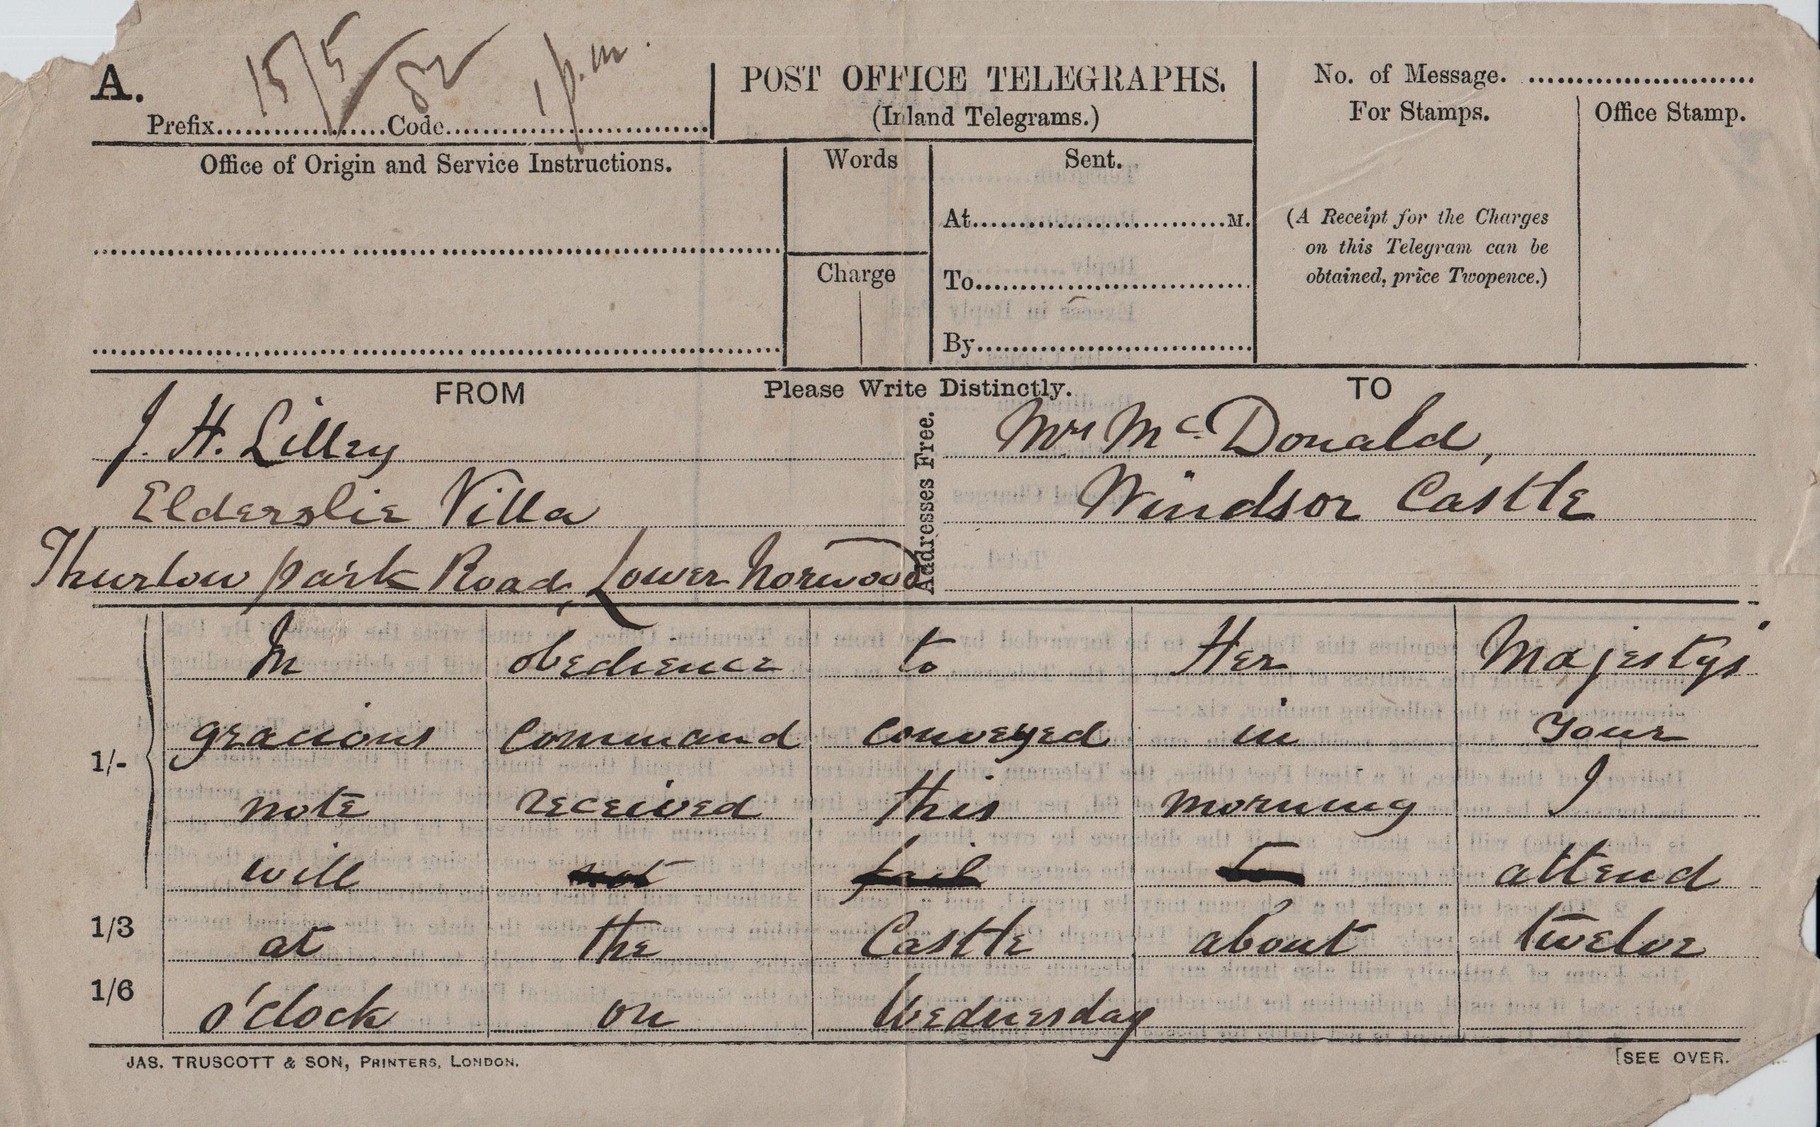 15/5/82 1 p.m.
A.
Prefix..................Code...........................
POST OFFICE TELEGRAPHS.
(Inland Telegrams.)
No. of Message. ..........................
For Stamps.
Office Stamp.
Office of Origin and Service Instructions.
Words
Sent.
At..............................M.
(A Receipt for the Charges
on this Telegram can be
obtained, price Twopence.)
Charge
To.................................
By.................................
FROM
Please Write Distinctly.
TO
J. H. Lilley
Elderslie Villa
Thurlow park Road, Lower Norwood
Addresses Free.
Mr McDonald,
Windsor Castle
In obedience to Her Majesty's
1/-
gracious command conveyed in your
note received this morning I
will not fail to attend
1/3 at the Castle about twelve
1/6 o'clock on Wednesday
JAS. TRUSCOTT & SON, PRINTERS, LONDON.
[SEE OVER.